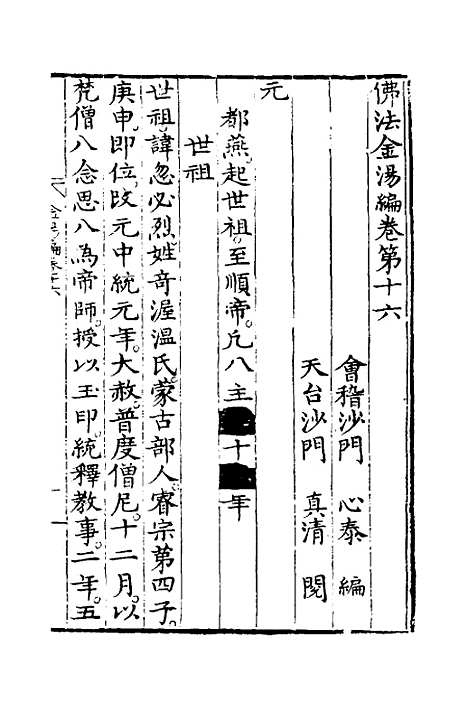 佛法金湯編卷第十六
會稽沙門 心泰 編
天台沙門 真清 閱
元
都燕。起世祖。至順帝。凡八主十年
世祖
世祖諱忽必烈。姓竒渥溫氏。蒙古部人。睿宗第四子。
庚申。即位。改元中統元年。大赦。普度僧尼。十二月。以
梵僧八念思八為帝師。授以玉印。統釋教事。二年。五